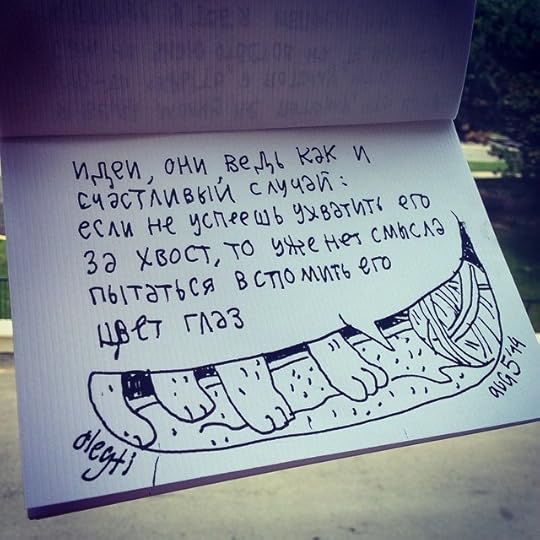 идеи, они, ведь как и
счастливый случай:
если не успеешь ухватить его
за хвост, то уже нет смысла
пытаться вспомить его
цвет глаз
olegti
aug 5'14